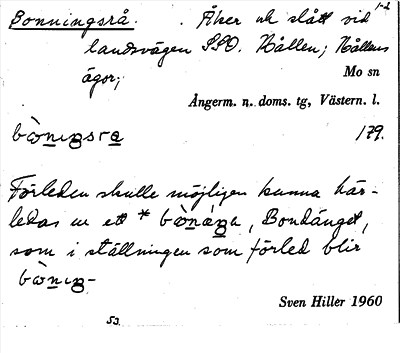 Bonningsrå. . Åker och slått vid 1-2
landsvägen SSO. Hållen; Hållens
ägor;
Mo sn
Ångerm. n. doms. tg, Västern. l.
179.
Förleden skulle möjligen kunna här-
ledas ur ett * , Bondänget,
som i ställningen som förled blir
Sven Hiller 1960
53.